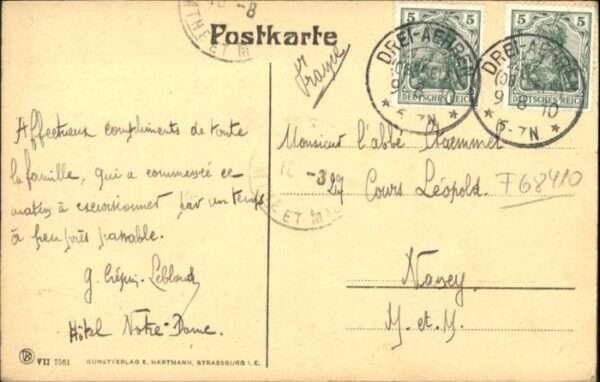 Postkarte
France
5 5
5 5
DEUTSCHES REICH
DEUTSCHES REICH
DREI-AEHREN
9 8 10
5-7N
DREI-AEHREN
9 8 10
5-7N
Affectueux compliments de toute
la famille, qui a commencé ce
matin à excursionner par un temps
à peu près passable.
G. Crépin-Leblond
Hôtel Notre-Dame.
Monsieur l'abbé
27 Cours Léopold.
F68410
Nancy
M. et M.
VII 2561
KUNSTVERLAG E. HARTMANN, STRASSBURG I. E.